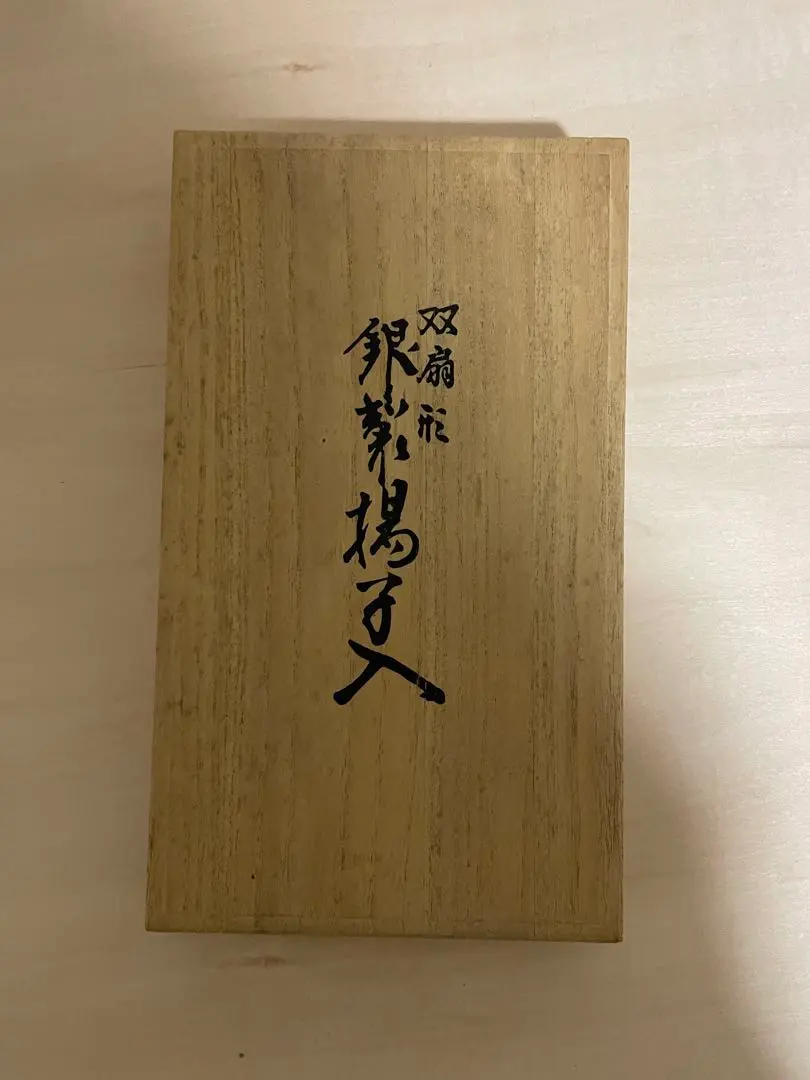 双扇形
銀製揚子入